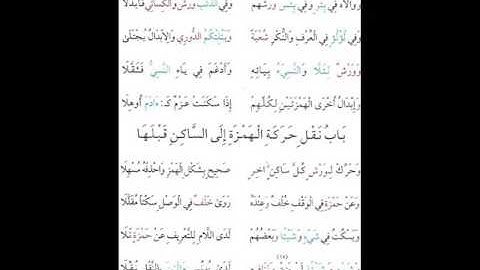 وَوَالَاهُ فِي بِئْرٍ وَفِي بِئْسَ وَرْشُهُمْ وَفِي الذِّئْبِ وَرْشٌ وَالْكِسَائِي فَأَبْدَلَا
وَفِي لُؤْلُؤٍ فِي الْعُرْفِ وَالنُّكْرِ شُعْبَةٌ وَيَأْلِتْكُمُ الدُّورِي وَالِابْدَالُ يُجْتَلَى
وَوَرْشٌ لِئَلَّا وَالنَّسِيءُ بِيَائِهِ وَأَدْغَمَ فِي يَاءِ النَّسِيءِ فَثَقَّلَا
وَإِبْدَالُ أُخْرَى الْهَمْزَتَيْنِ لِكُلِّهِمْ إِذَا سَكَنَتْ عَزْمٌ كَـ: ءَادَمَ أُوهِلَا
بَابُ نَقْلِ حَرَكَةِ الْهَمْزَةِ إِلَى السَّاكِنِ قَبْلَهَا
وَحَرِّكْ لِوَرْشٍ كُلَّ سَاكِنٍ اخِرٍ صَحِيحٍ بِشَكْلِ الْهَمْزِ وَاحْذِفْهُ مُسْهِلَا
وَعَنْ حَمْزَةٍ فِي الْوَقْفِ خُلْفٌ وَعِنْدَهُ رَوَى خَلَفٌ فِي الْوَصْلِ سَكْتًا مُقَلَّلَا
وَيَسْكُتُ فِي شَيْءٍ وَشَيْئًا وَبَعْضُهُمْ لَدَى اللَّامِ لِلتَّعْرِيفِ عَنْ حَمْزَةٍ تَلَا